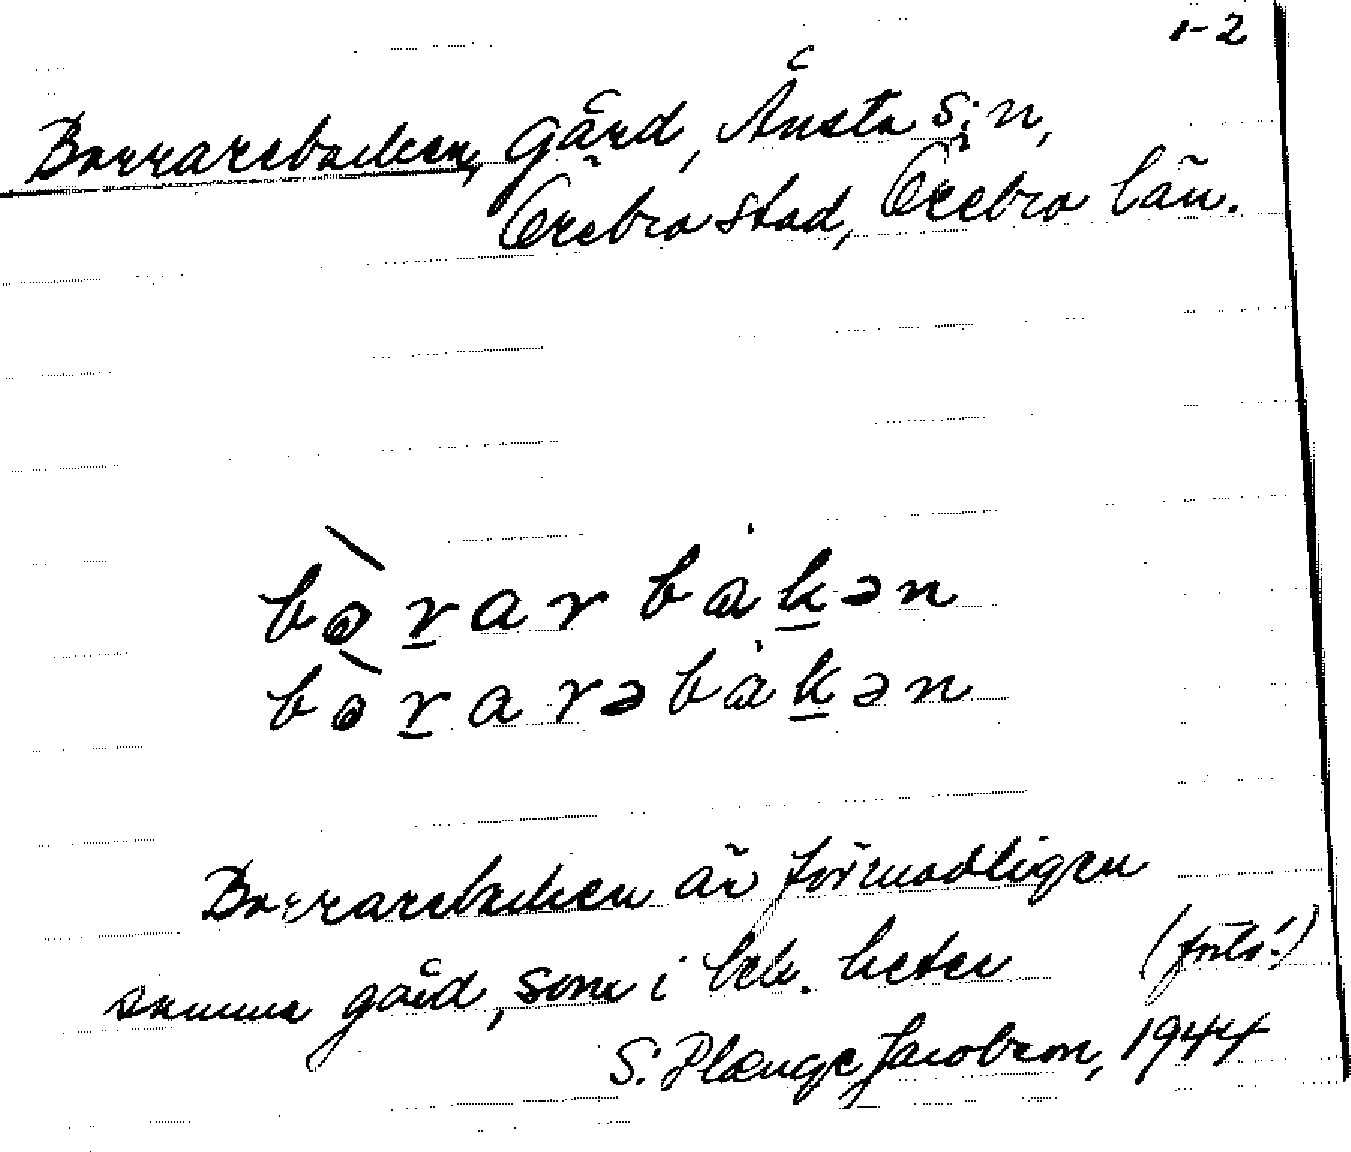 1-2
Borrarebacken, gård, Ånsta s:n,
Örebro stad, Örebro län.
bòrarbakən
bòrarəbakən
Borrarebacken är förmodligen
samma gård, som i bek. heter (forts.!)
S. Plænge Jacobson, 1944